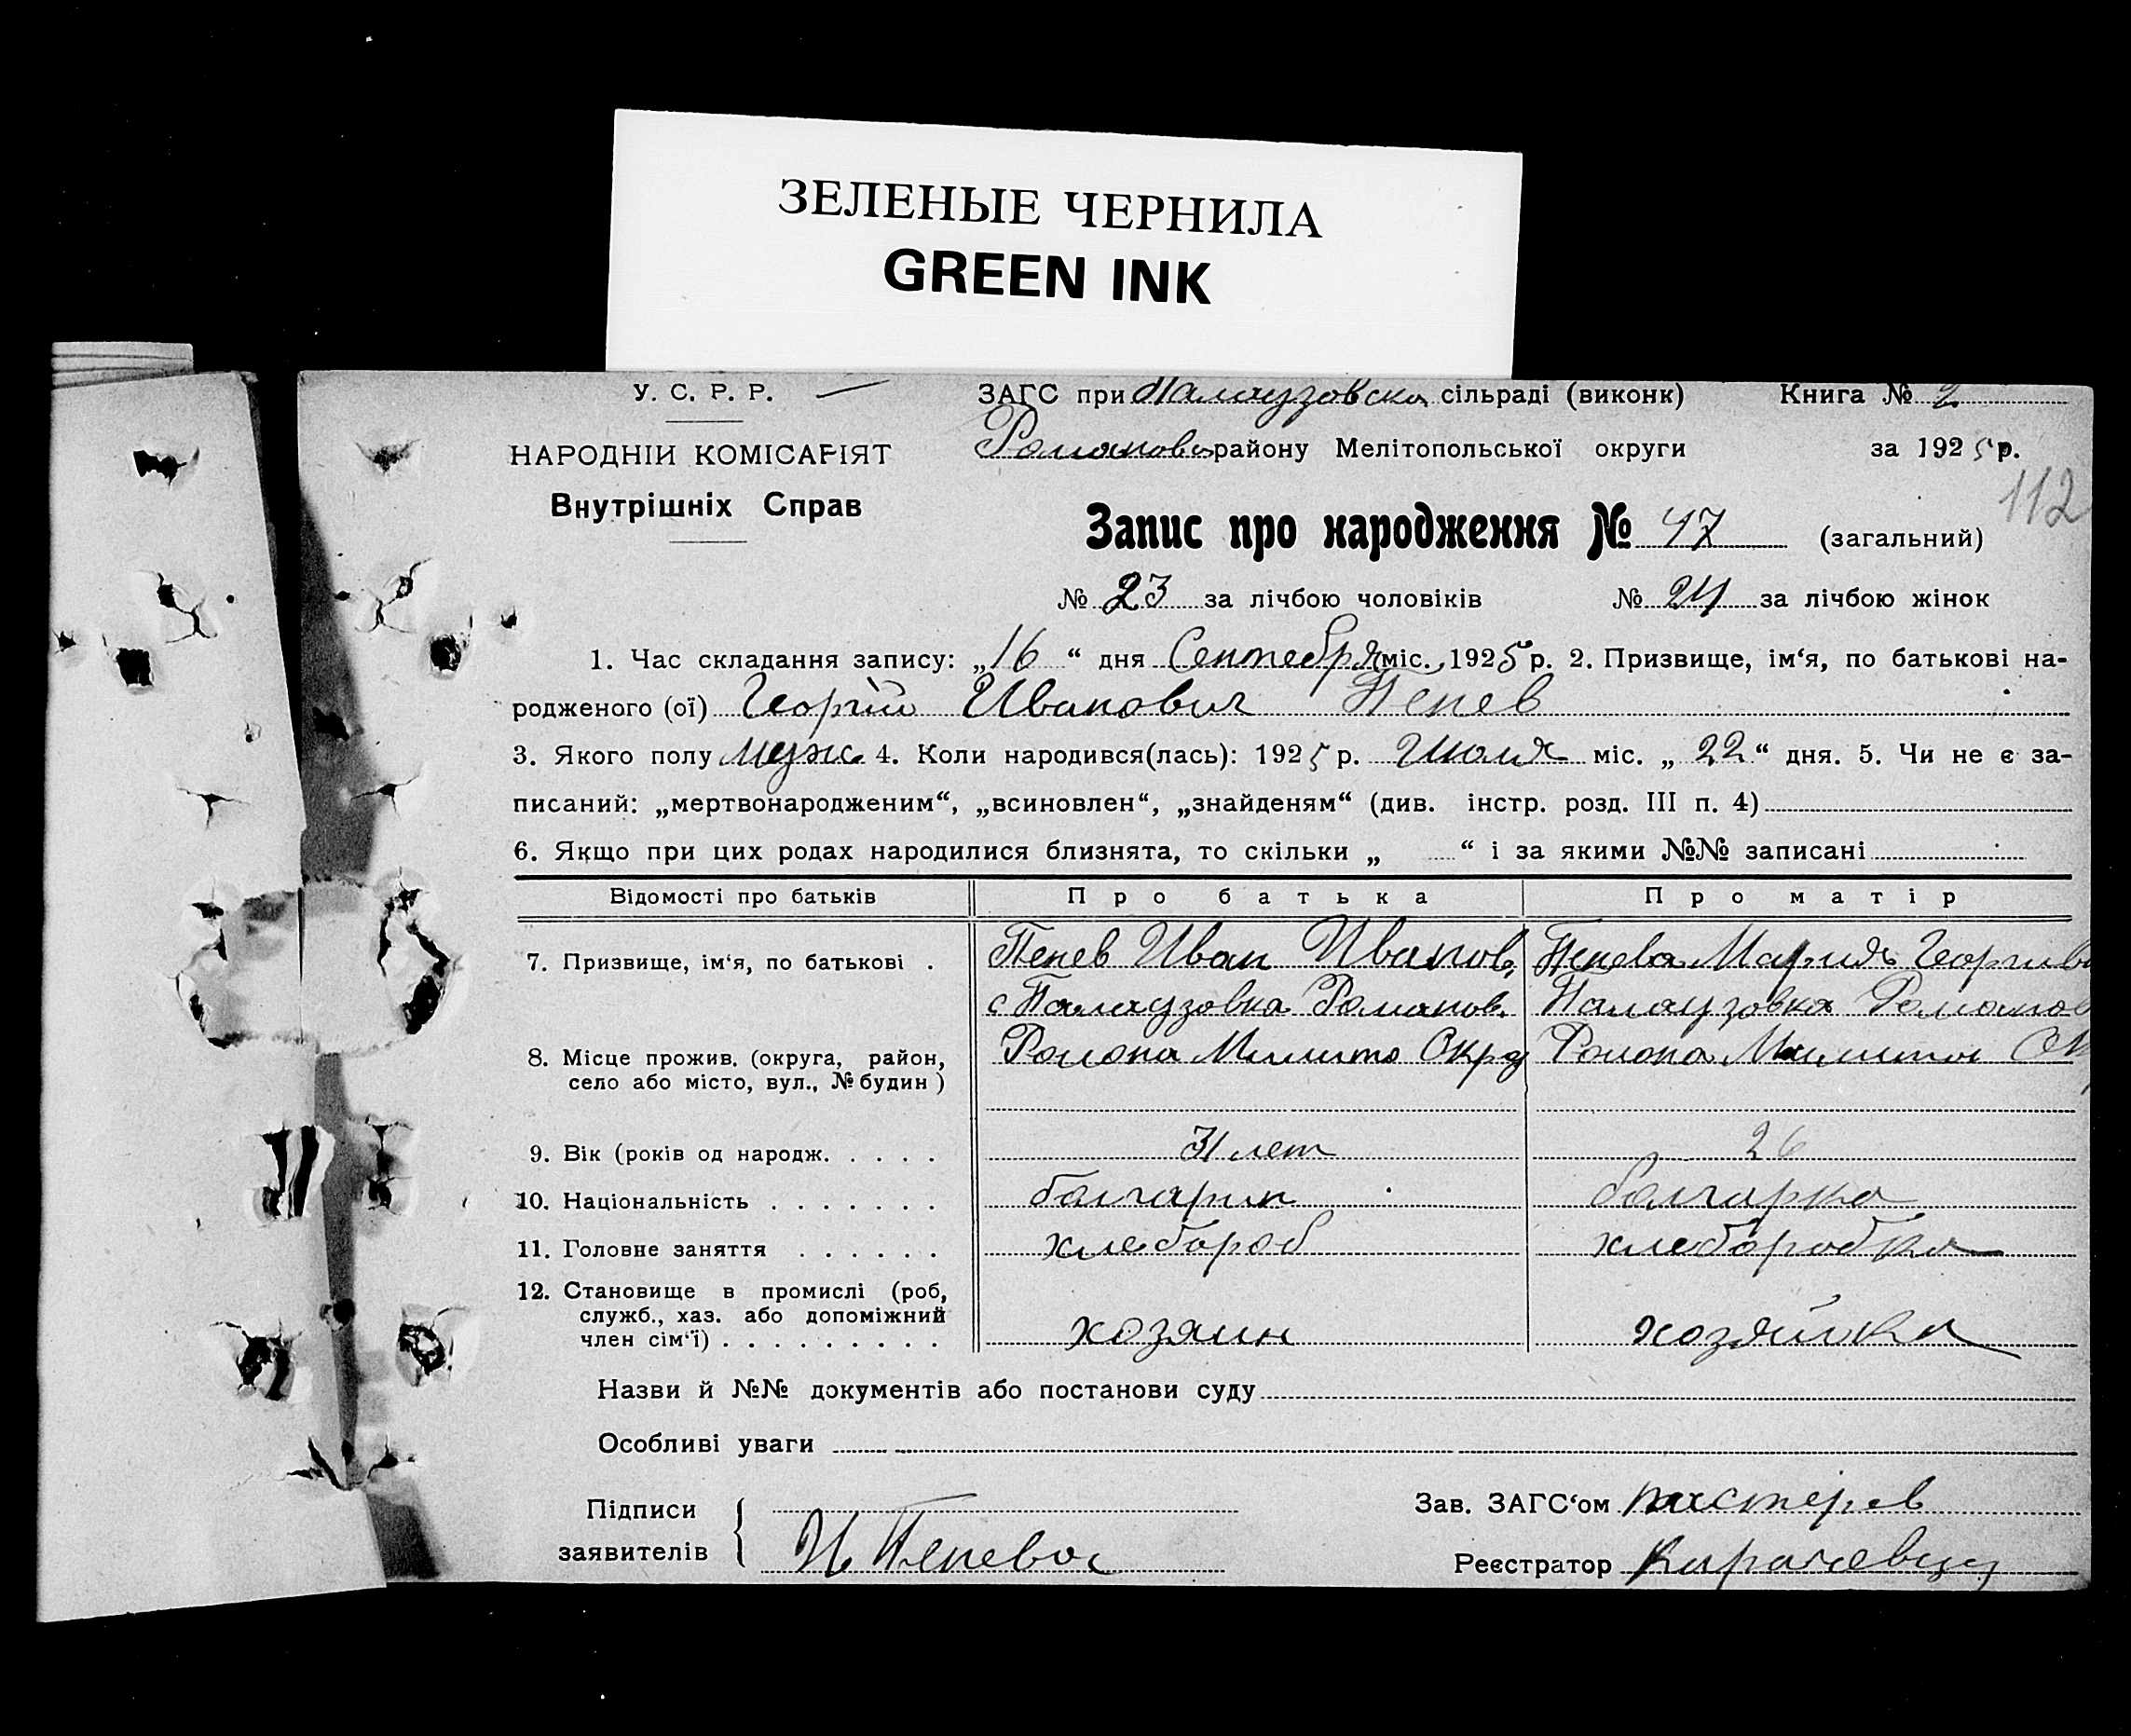 ЗЕЛЕНЫЕ ЧЕРНИЛА
GREEN INK
У. С. Р. Р. ЗАГС при Палаузовска сільраді (виконк) Книга № 2
НАРОДНІЙ КОМІСАРІЯТ Романовс району Мелітопольської округи за 1925 р.
112
Внутрішніх Справ
Запис про народження № 47 (загальний)
№ 23 за лічбою чоловіків № 24 за лічбою жінок
1. Час складання запису: „16“ дня Сентебря міс. 1925 р. 2. Призвище, ім‘я, по батькові на-
родженого (ої) Георгій Иванович Пенев
3. Якого полу муж. 4. Коли народився(лась): 1925 р. Июля міс. „22“ дня. 5. Чи не є за-
писаний: „мертвонародженим“, „всиновлен“, „знайденям“ (див. інстр. розд. III п. 4)
6. Якщо при цих родах народилися близнята, то скільки „ “ і за якими №№ записані
Відомості про батьків Про батька Про матір
7. Призвище, ім‘я, по батькові . Пенев Иван Иванов. Пенева Мария Георгивн
с Палаузовка Романов. Палаузовка Романов
8. Місце прожив. (округа, район, Роиона Милито Окру Роиона Милитои Ок
село або місто, вул., № будин )
9. Вік (років од народж. . . . . 31 лет 26
10. Національність . . . . . . . болгарин болгарка
11. Головне заняття . . . . . . хлебороб хлеборобка
12. Становище в промислі (роб,
служб., хаз. або допоміжний
член сім‘ї) . . . . . . . . . хозяин хозяйка
Назви й №№ документів або постанови суду
Особливі уваги
Підписи Зав. ЗАГС‘ом
заявителів И Пенева Реєстратор